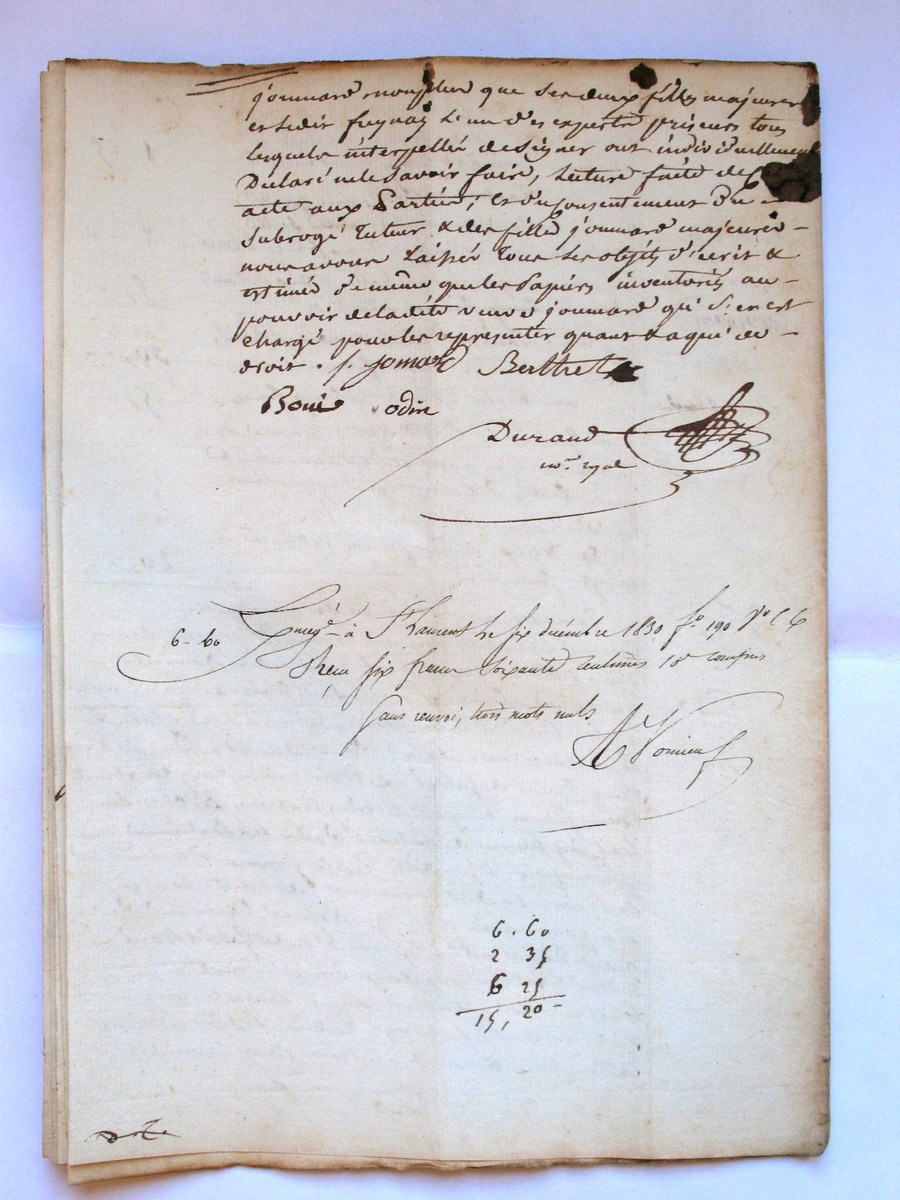 jommard, non plus que ses deux filles majeures
et ledit freynay l'un des experts priseurs tous
lesquels interpellés de signer ont individuellement
Déclaré ne le savoir faire, Lecture faite de
acte aux Parties, et du consentement Du
subrogé tuteur & des filles jommard majeures -
nous avons Laissé tous les objets décrit &
estimés de même que les Papiers inventoriés au -
pouvoir de ladite veuve jommard qui s'en est
chargé pour les représenter quand & a qui de -
droit. f. jomard Berthet
Boni odire
Durand
nore. royal
6 - 60
Enregé. à St Laurent le six décembre 1830 fo. 190 Vo C 6
Reçu six francs soixante centimes 10e compris
sans renvoi, trois mots nuls
6 . 60
2 35
6 25
15, 20 -